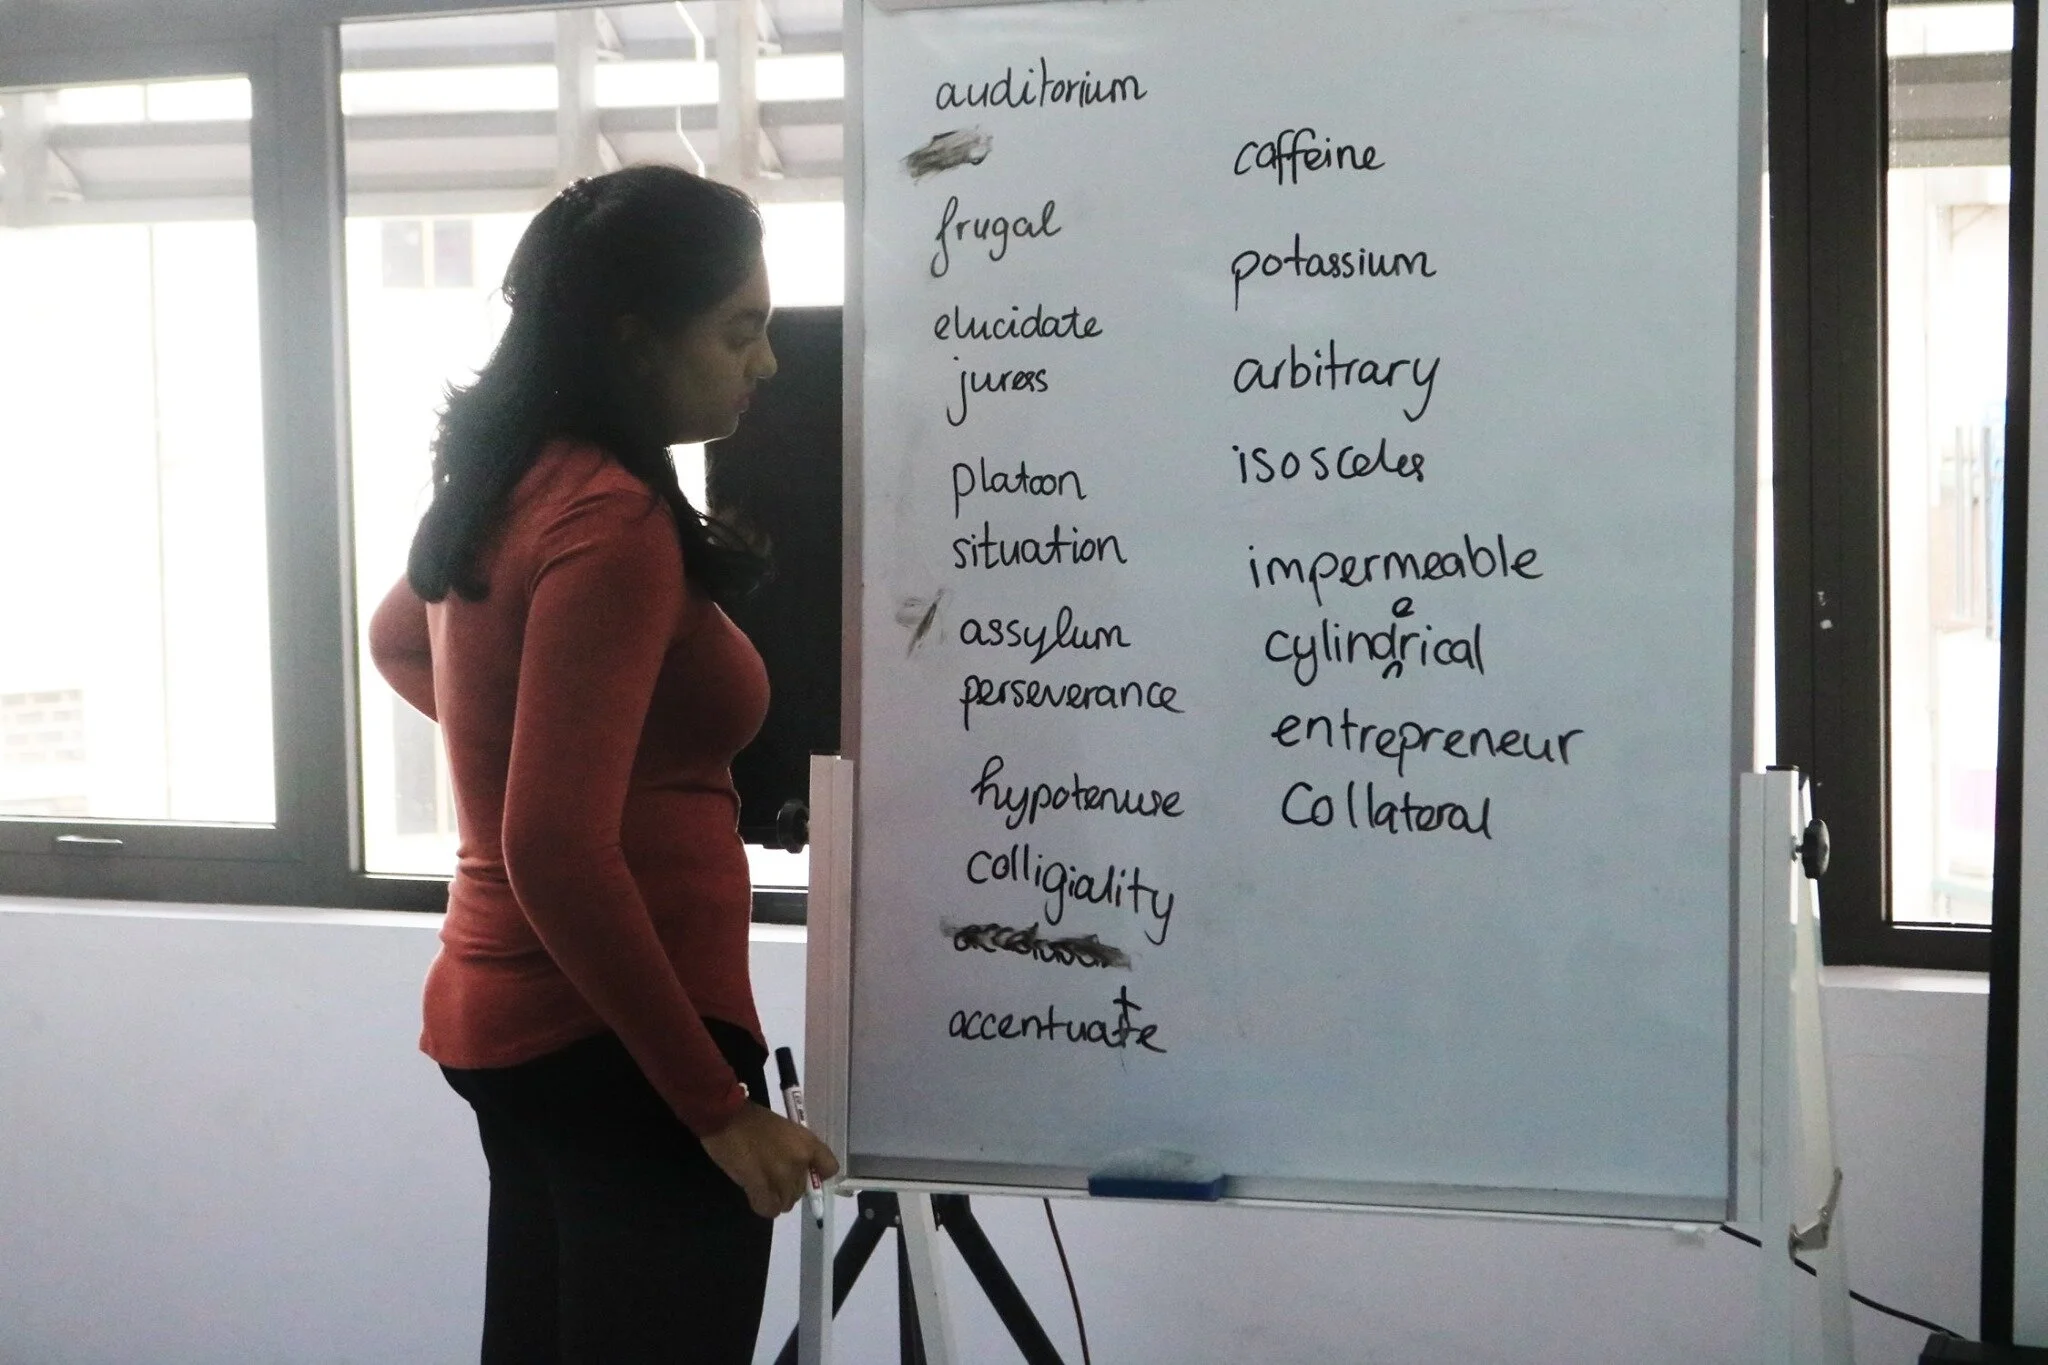 auditorium
frugal
elucidate
juress
platoon
situation
assylum
perseverance
hypotenuse
colligiality
accentuate
caffeine
potassium
arbitrary
isosceles
impermeable
cylindrical
entrepreneur
Collateral